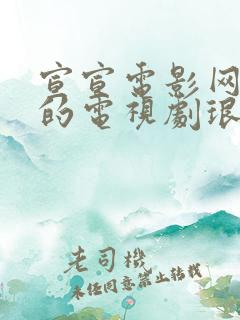 宣宣電影网
的電視劇琅
老司機
未经同意禁止转载